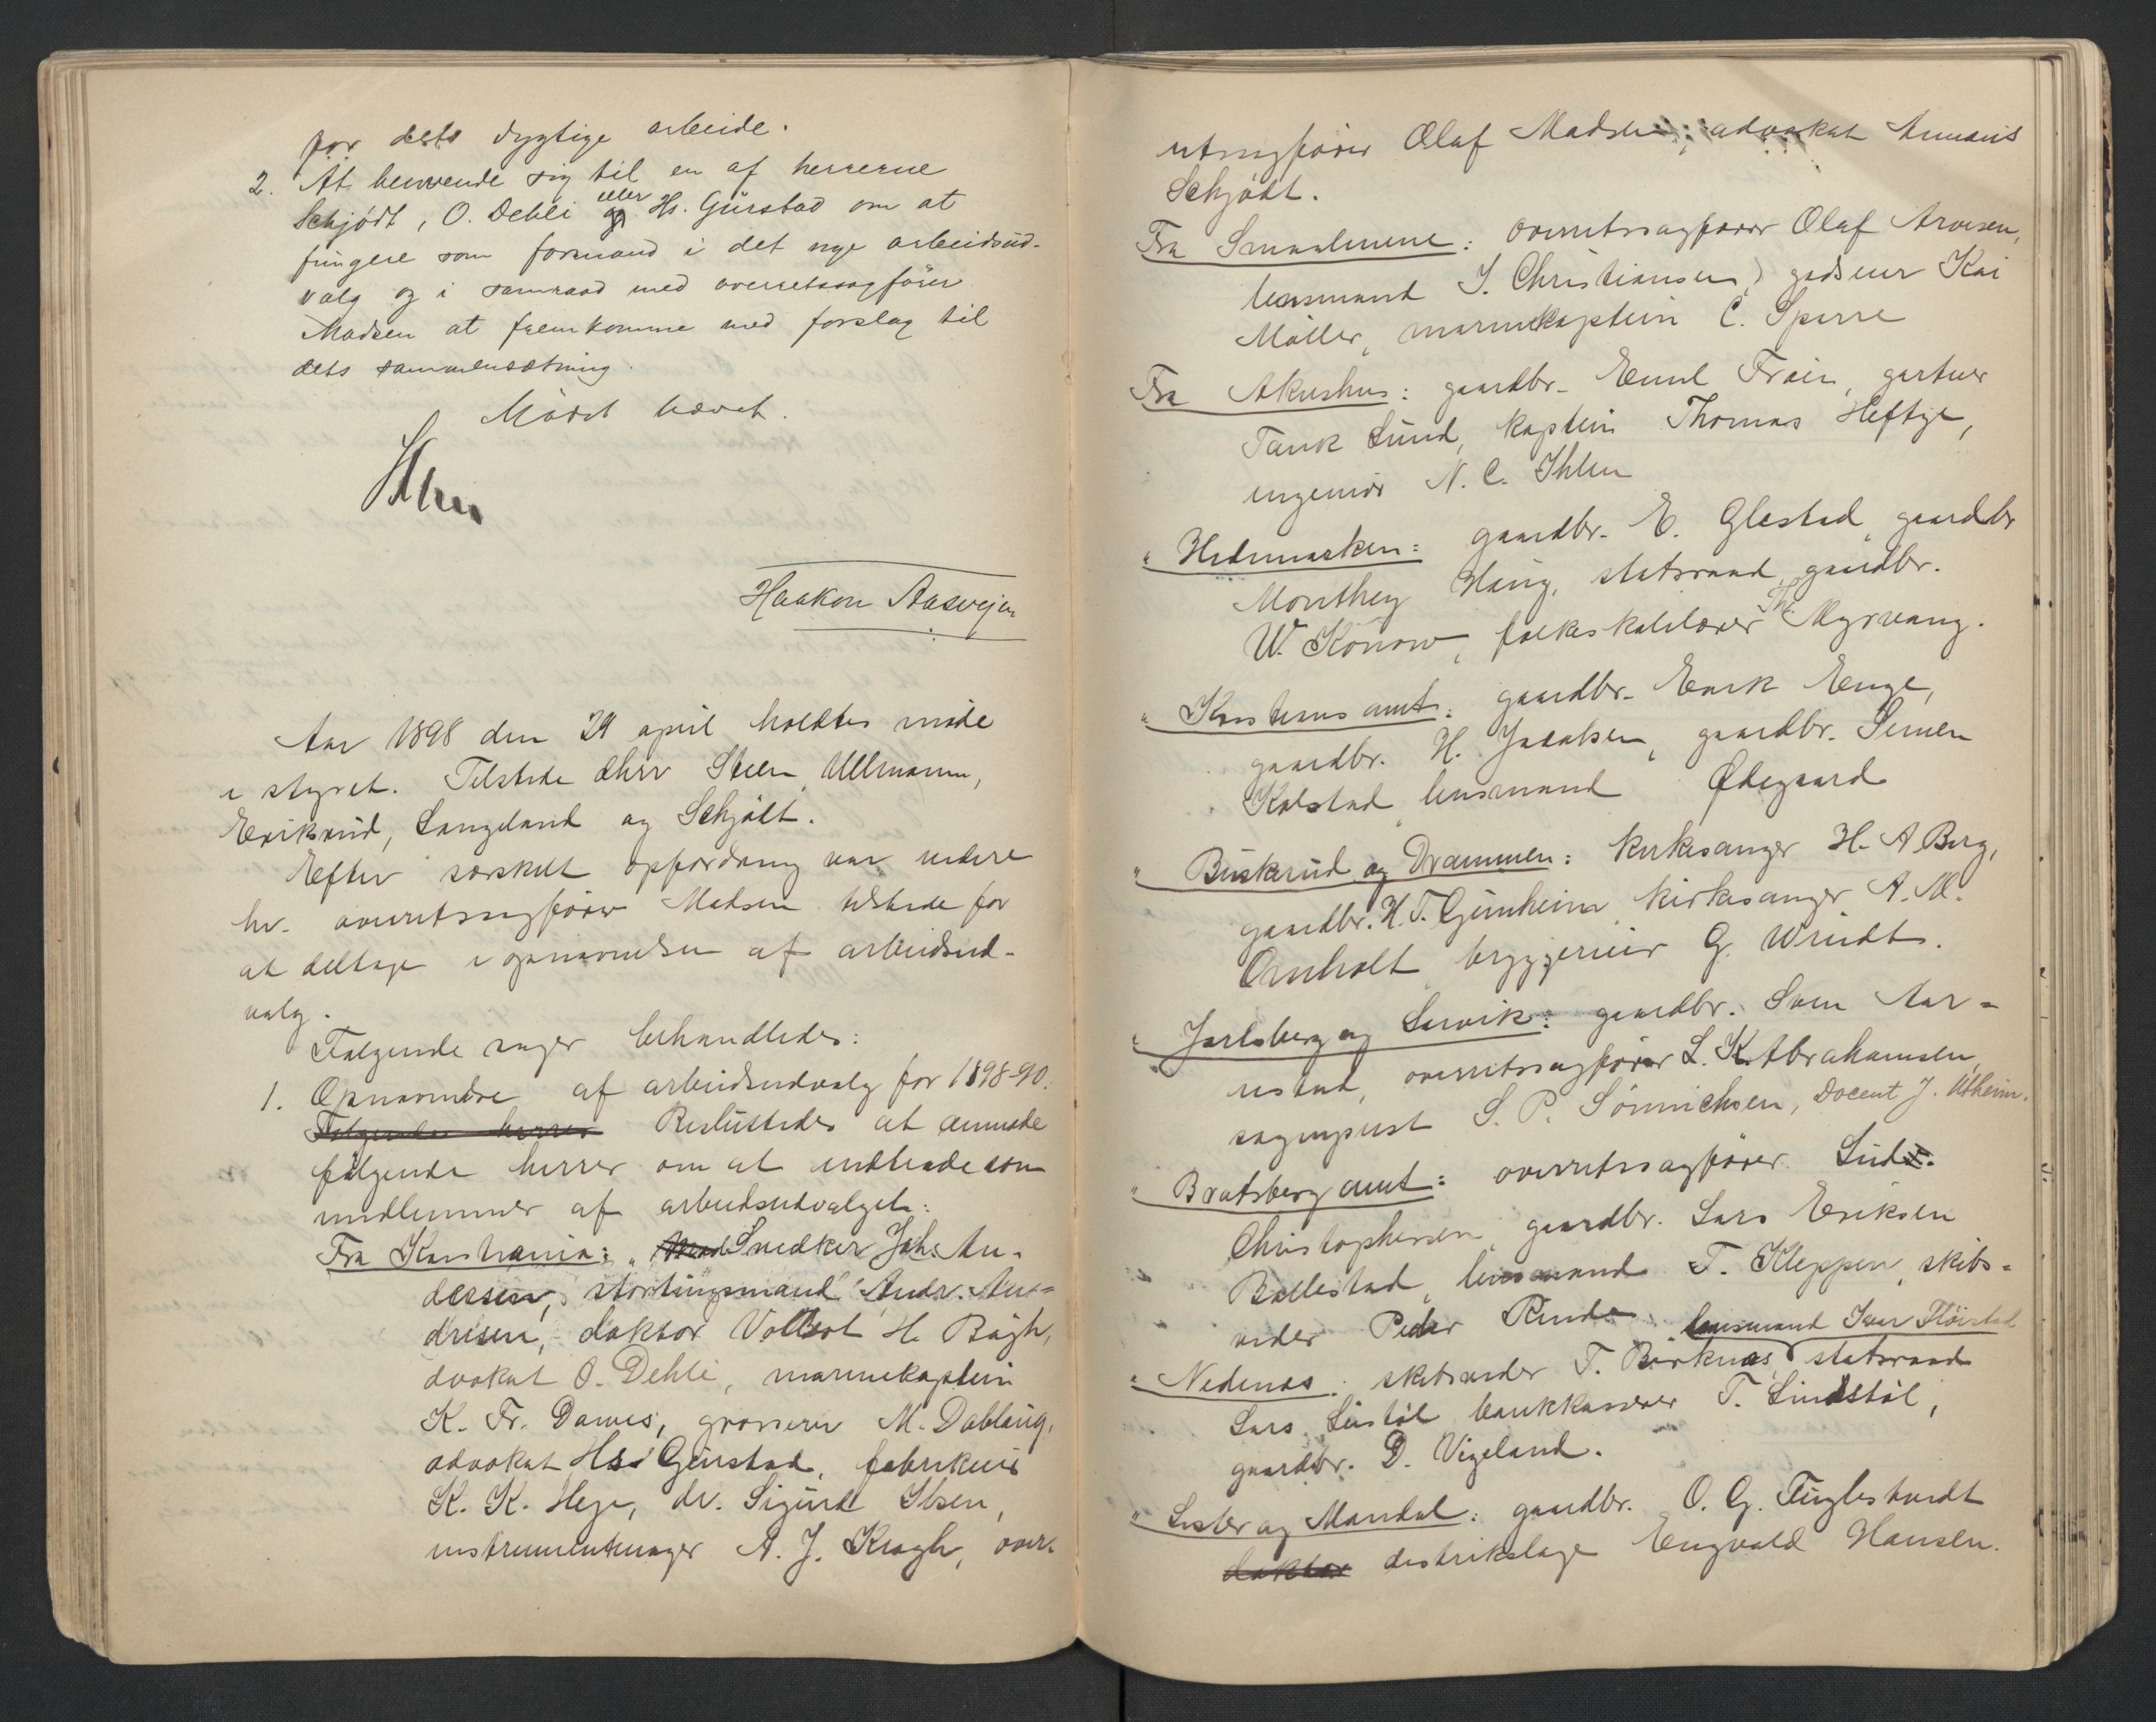 for dets dygtige arbeide.
2. At henvende sig til en af herrerne
Schjödt, O. Dehli eller Hs. Gürstad om at
fungere som formand i det nye arbeidsud-
valg og i samraad med overretssagfører
Madsen at fremkomme med forslag til
dets sammensætning.
Mödet hævet.
Haakon Aasvejen
Aar 1898 den 29 april holdtes møde
i styret. Tilstede dhrr Steen, Ullmann,
Eriksrud, Langeland og Schjødt.
Efter særskilt opfordring var videre
hr. overretssagfører Madsen tilstede for
at deltage i opnævnelsen af arbeidsud-
valg.
Følgende sager behandledes:
1. Opnævnelse af arbeidsudvalg for 1898-90.
Følgende herrer Besluttedes at anmode
følgende herrer om at indtræde som
medlemmer af arbeidsudvalget:
Fra Kristiania: Snedker Joh. An-
dersen, stortingsmand Andr. An-
dresen, doktor Volbert H. Bugh,
dvokat O. Dehli, marinekaptein
K. Fr. Dawes, grosserer M. Dobloug,
advokat Hs. Gürstad, fabrikeier
K. K. Heje, dr. Sigurd Ibsen,
instrumentmager A. J. Kragh, over-
retssagfører Olaf Madsen, advokat Annæus
Schjødt.
Fra Smaalenene: overretssagfører Olaf Arvesen,
lensmand J. Christiansen, godseier Kai
Møller, marinekaptein C. Sparre
Fra Akershus: gaardbr. Emil Frøen, gartner
Tank Lund, kaptein Thomas Heftye,
ingeniør N. C. Ihlen
" Hedemarken: gaardbr. E. Glestad, gaardbr
Monthey Haug, statsraad, gaardbr.
W. Konow, folkeskolelærer Th. Myrvang.
" Kristians amt: gaardbr. Enrk Enge,
gaardbr. H. Jacobsen, gaardbr. Simen
Kolstad, lensmand Ødegaard
" Buskerud og Drammen: kirkesanger H. A Berg,
gaardbr. H. T. Gunheim, kirkesanger A. M.
Omholt, bryggerieier G. Wriedt.
" Jarlsberg og Larvik: gaardbr. Sven Aar=
restad, overretssagfører L. K. Abrahamsen,
sogneprest S. P. Sönnichsen, Docent J. Utheim.
" Bratsberg amt: overretssagfører Lud.
Christophersen, gaardbr. Lars Eriksen
Bollestad, lensmand T. Kleppen, skibs=
reder Peder Rinde
lensmand Ivar Fløistad
" Nedenes: skibsreder T. Birknes statsraad
Lars Liestøl, bankkasserer T. Lindstøl,
gaardbr. D. Vigeland.
" Lister og Mandal: gaardbr. O. G. Fuglestvedt
doktor distriktslæge Engvald Hansen.